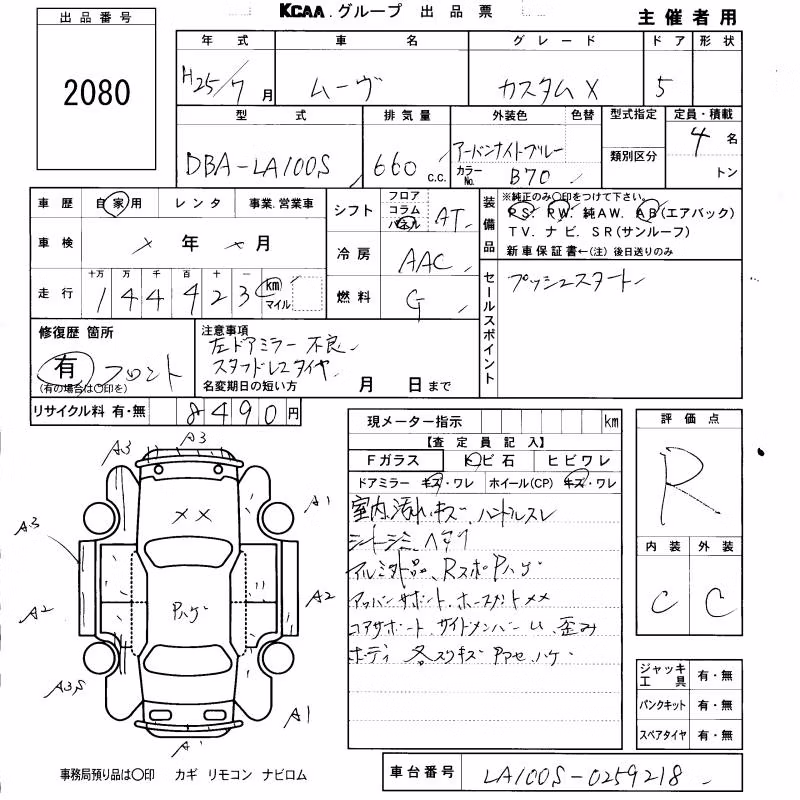 KCAA. グループ 出品票
主催者用
出品番号
2080
年式 車名 グレード ドア 形状
H25/7月 ムーヴ カスタムX 5
型式 排気量 外装色 色替 型式指定 定員・積載
DBA-LA100S 660 c.c. アーバンナイトブルー 4名
カラーNo. B70 類別区分 トン
車歴 自家用 レンタ 事業.営業車
シフト フロア コラム パネル AT
装備品 ※純正のみ○印をつけて下さい。
PS. PW. 純AW. AB(エアバック)
TV. ナビ. SR(サンルーフ)
新車保証書←(注) 後日送りのみ
車検 × 年 × 月
冷房 AAC
走行 十万 万 千 百 十 一
144423 km マイル
燃料 G
セールスポイント プッシュスタート
修復歴 箇所
有 フロント
(有の場合は○印を)
注意事項
左ドアミラー不良
スタッドレスタイヤ
名変期日の短い方 月 日まで
リサイクル料 有・無 8490円
現メーター指示 km
【査定員記入】
Fガラス トビ石 ヒビワレ
ドアミラー キズ・ワレ ホイール(CP) キズ・ワレ
室内汚れ.キズ.ハンドルスレ
シートシミ.ヘタリ
アルミ社外品.RスポPハゲ
アッパーサポート.ホースメントXX
コアサポート.サイドメンバーU.歪み
ボディ 各スリキズ
評価点
R
内装 外装
C C
ジャッキ工具 有・無
パンクキット 有・無
スペアタイヤ 有・無
A3
A3
A1
A3
XX
A2
Pハゲ
A2
A3S
A1
A1
事務局預り品は○印 カギ リモコン ナビロム
車台番号 LA100S-0259218